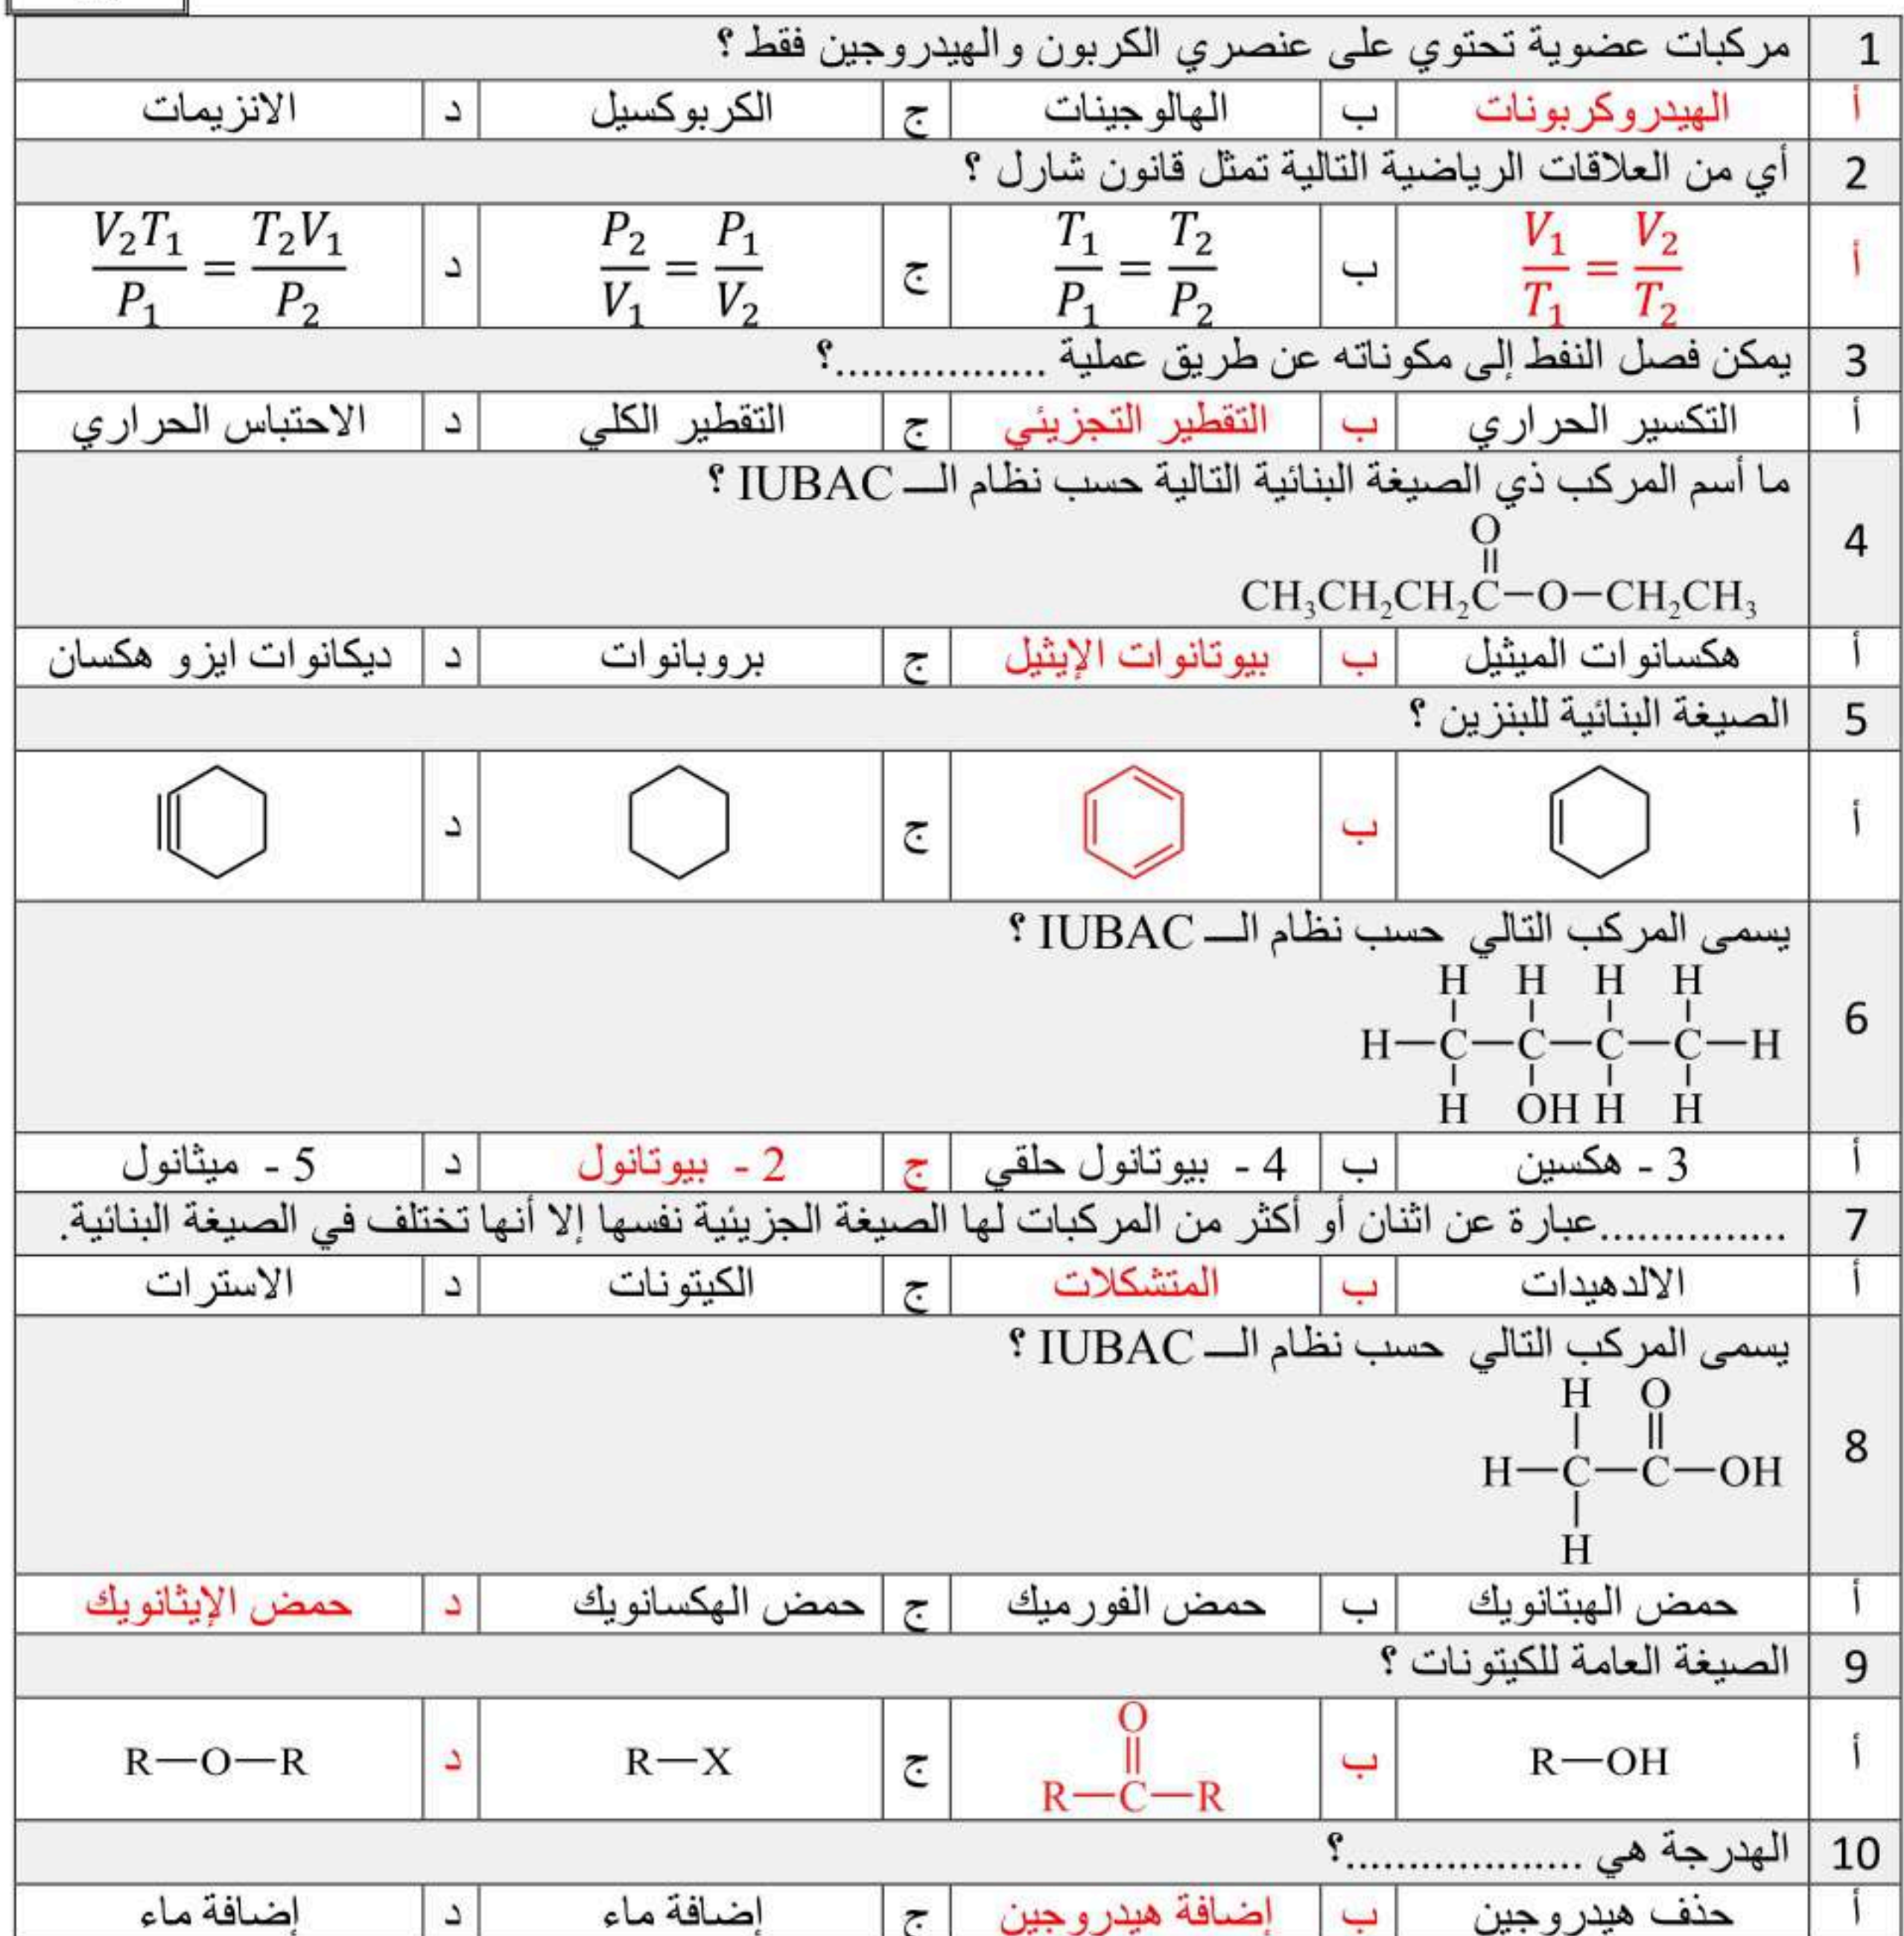 1 مركبات عضوية تحتوي على عنصري الكربون والهيدروجين فقط ؟
أ الهيدروكربونات ب الهالوجينات ج الكربوكسيل د الانزيمات
2 أي من العلاقات الرياضية التالية تمثل قانون شارل ؟
أ V₁/T₁ = V₂/T₂ ب T₁/P₁ = T₂/P₂ ج P₂/V₁ = P₁/V₂ د V₂T₁/P₁ = T₂V₁/P₂
3 يمكن فصل النفط إلى مكوناته عن طريق عملية .................؟
أ التكسير الحراري ب التقطير التجزيئي ج التقطير الكلي د الاحتباس الحراري
4 ما أسم المركب ذي الصيغة البنائية التالية حسب نظام الـــ IUBAC ؟
O
CH₃CH₂CH₂C–O–CH₂CH₃
أ هكسانوات الميثيل ب بيوتانوات الإيثيل ج بروبانوات د ديكانوات ايزو هكسان
5 الصيغة البنائية للبنزين ؟
أ ب ج د
6 يسمى المركب التالي حسب نظام الـــ IUBAC ؟
H H H H
H—C—C—C—C—H
H OH H H
أ 3 - هكسين ب 4 - بيوتانول حلقي ج 2 - بيوتانول د 5 - ميثانول
7 ...............عبارة عن اثنان أو أكثر من المركبات لها الصيغة الجزيئية نفسها إلا أنها تختلف في الصيغة البنائية.
أ الالدهيدات ب المتشكلات ج الكيتونات د الاسترات
8 يسمى المركب التالي حسب نظام الـــ IUBAC ؟
H O
H—C—C—OH
H
أ حمض الهبتانويك ب حمض الفورميك ج حمض الهكسانويك د حمض الإيثانويك
9 الصيغة العامة للكيتونات ؟
O
أ R—OH ب R—C—R ج R—X د R—O—R
10 الهدرجة هي ...................؟
أ حذف هيدروجين ب إضافة هيدروجين ج إضافة ماء د إضافة ماء